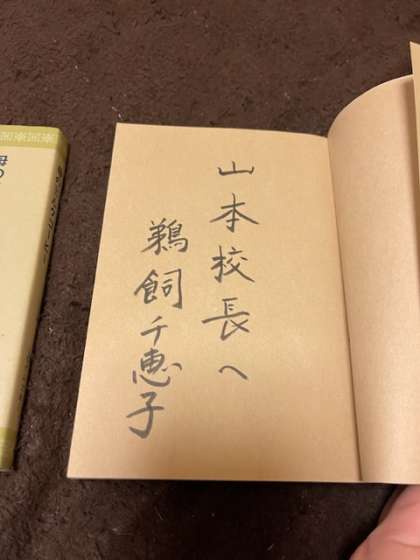 山本校長へ
鵜飼千恵子